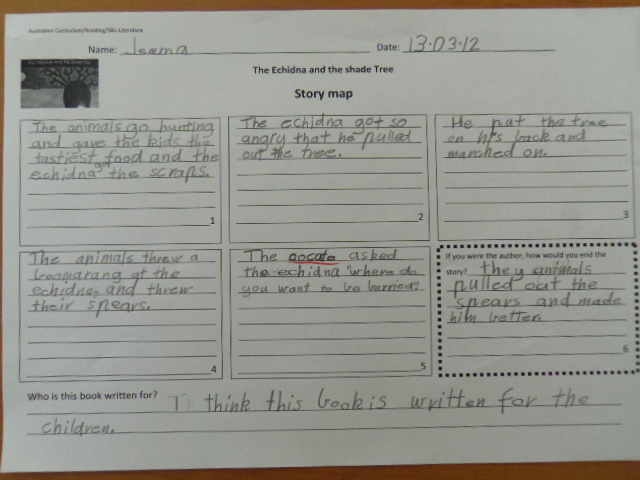 Australian Curriculum/Reading/Skls-Literature
Name: Jeema Date: 13.03.12
The Echidna and the shade Tree
Story map
The animals go hunting
and gave the kids the
tastiest food and the
echidna got the scraps.
1
The echidna got so
angry that he pulled
out the tree.
2
He put the tree
on his back and
marched on.
3
The animals threw a
boomarang at the
echidna, and threw
their spears.
4
The gocata asked
the echidna "where do
you want to be burried?
5
If you were the author, how would you end the
story? they animals
pulled out the
spears and made
him better.
6
Who is this book written for? I think this book is written for the
children.